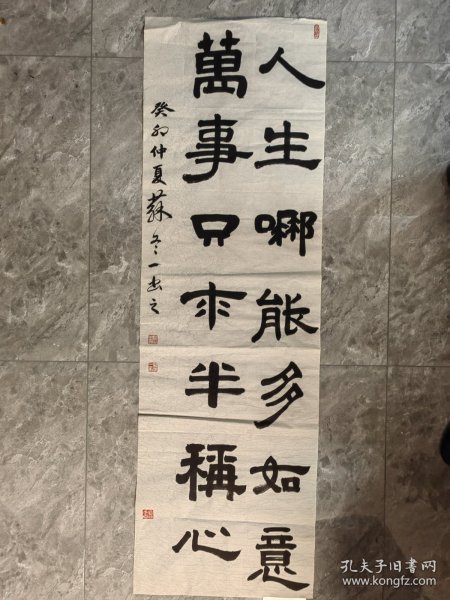 人生哪能多如意
萬事只求半稱心
癸卯仲夏蘇冬一书之
孔夫子旧书网
www.kongfz.com